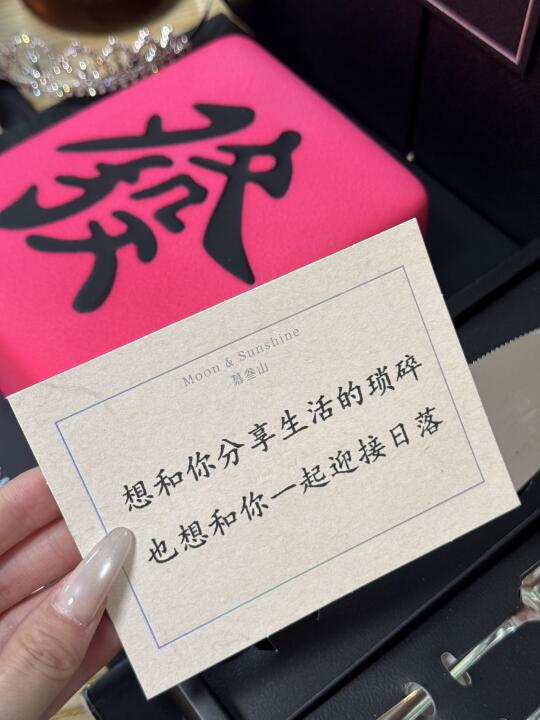 發
Moon & Sunshine
慕叁山
想和你分享生活的琐碎
也想和你一起迎接日落